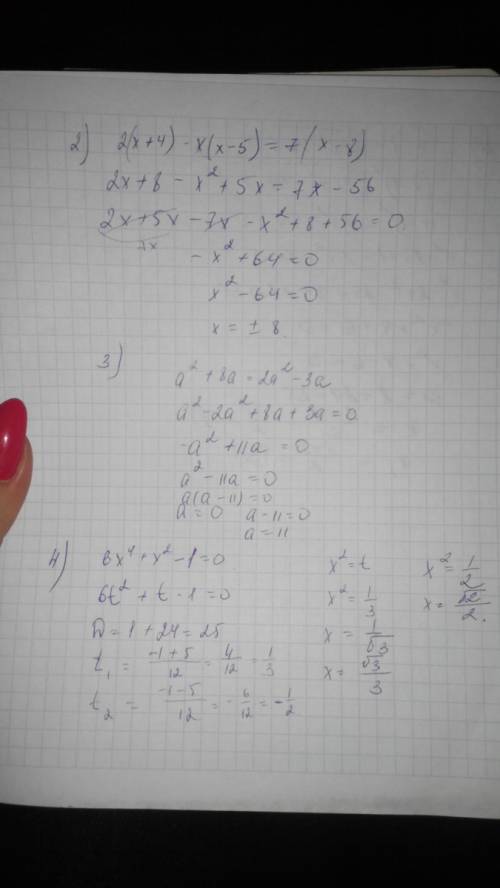 2) 2(x+4) - x(x-5) = 7(x-8)
2x+8 - x²+5x = 7x - 56
2x+5x - 7x - x²+8+56 = 0
7x
- x²+64 = 0
x² - 64 = 0
x = ± 8
3)
a² + 8a = 2a² - 3a
a² - 2a² + 8a + 3a = 0
-a² + 11a = 0
a² - 11a = 0
a(a - 11) = 0
a = 0 a - 11 = 0
a = 11
4) 6x⁴ + x² - 1 = 0
6t² + t - 1 = 0
D = 1 + 24 = 25
t₁ = (-1+5)/12 = 4/12 = 1/3
t₂ = (-1-5)/12 = -6/12 = -1/2
x² = t
x² = 1/3
x = 1/√3
x = √3/3
x² = 1/2
x = √2/2.